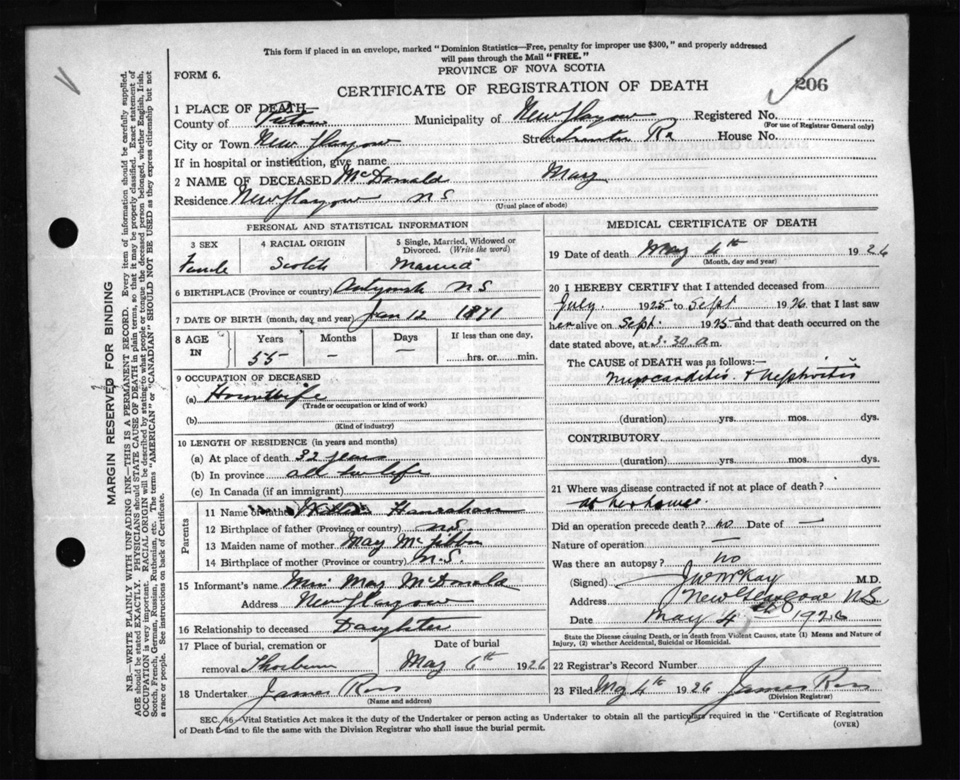 This form if placed in an envelope, marked "Dominion Statistics—Free, penalty for improper use $300," and properly addressed
will pass through the Mail "FREE."
PROVINCE OF NOVA SCOTIA
FORM 6.
CERTIFICATE OF REGISTRATION OF DEATH
206
1 PLACE OF DEATH—
County of Pictou Municipality of New Glasgow Registered No.
(For use of Registrar General only)
City or Town New Glasgow Street Rd House No.
If in hospital or institution, give name
2 NAME OF DECEASED McDonald Mary
Residence New Glasgow NS
(Usual place of abode)
PERSONAL AND STATISTICAL INFORMATION
3 SEX 4 RACIAL ORIGIN 5 Single, Married, Widowed or Divorced. (Write the word)
Female Scotch Married
6 BIRTHPLACE (Province or country) Antigonish NS
7 DATE OF BIRTH (month, day and year) Jan 12 1871
8 AGE IN Years Months Days If less than one day,
55 — — hrs. or min.
9 OCCUPATION OF DECEASED
(a) Housewife
(Trade or occupation or kind of work)
(b)
(Kind of industry)
10 LENGTH OF RESIDENCE (in years and months)
(a) At place of death 32 years
(b) In province all her life
(c) In Canada (if an immigrant)
Parents
11 Name of father Hanrahan
12 Birthplace of father (Province or country) N.S.
13 Maiden name of mother May
14 Birthplace of mother (Province or country) N.S.
15 Informant's name Miss May McDonald
Address New Glasgow
16 Relationship to deceased Daughter
17 Place of burial, cremation or Date of burial
removal Thorburn May 6th 1926
18 Undertaker James Ross
(Name and address)
MEDICAL CERTIFICATE OF DEATH
19 Date of death May 4th 1926
(Month, day and year)
20 I HEREBY CERTIFY that I attended deceased from
July 1925 to Sept 1926 that I last saw
her alive on Sept. 1925 and that death occurred on
date stated above, at 3.30 a m.
The CAUSE OF DEATH was as follows:—
Myocarditis & Nephritis
(duration) yrs. mos. dys.
CONTRIBUTORY
(duration) yrs. mos. dys.
21 Where was disease contracted if not at place of death?
at her home.
Did an operation precede death? no Date of —
Nature of operation —
Was there an autopsy? no
(Signed) McKay M.D.
Address New Glasgow NS
Date May 4th 1926
State the Disease causing Death, or in death from Violent Causes, state (1) Means and Nature of
Injury, (2) whether Accidental, Suicidal or Homicidal.
22 Registrar's Record Number
23 Filed May 4th 1926 James Ross
(Division Registrar)
SEC. 46—Vital Statistics Act makes it the duty of the Undertaker or person acting as Undertaker to obtain all the particulars required in the "Certificate of Registration
of Death" and to file the same with the Division Registrar who shall issue the burial permit. (OVER)
MARGIN RESERVED FOR BINDING
N.B.—WRITE PLAINLY WITH UNFADING INK—THIS IS A PERMANENT RECORD. Every item of information should be carefully supplied.
AGE should be stated EXACTLY. PHYSICIANS should STATE CAUSE OF DEATH in plain terms, so that it may be properly classified. Exact statement of
OCCUPATION is very important. RACIAL ORIGIN will be described by stating to what people or tongue the deceased person belonged, whether English, Irish,
Scotch, French, German, Russian, Ruthenian, etc. The terms "AMERICAN" or "CANADIAN" SHOULD NOT BE USED as they express citizenship but not
a race or people. See instructions on back of Certificate.